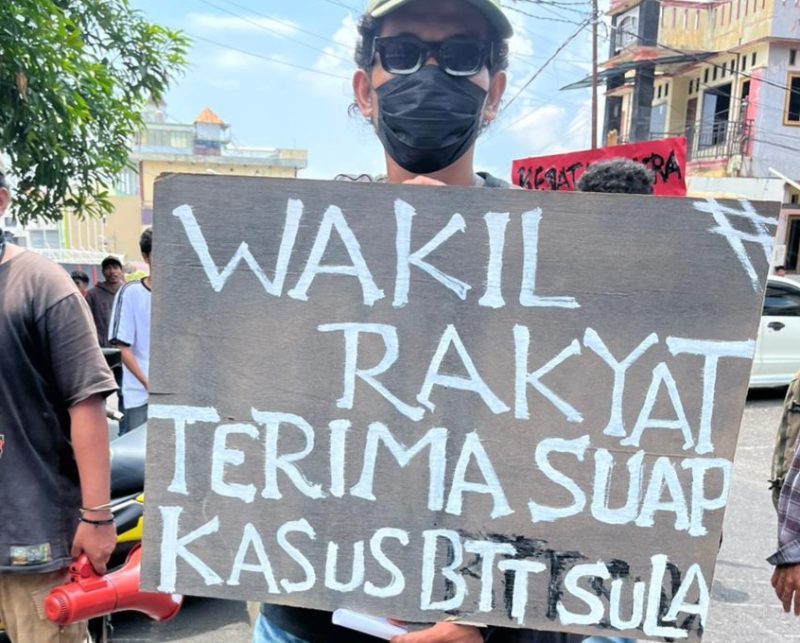 WAKIL #
RAKYAT
TERIMA SUAP
KASUS BTT SULA